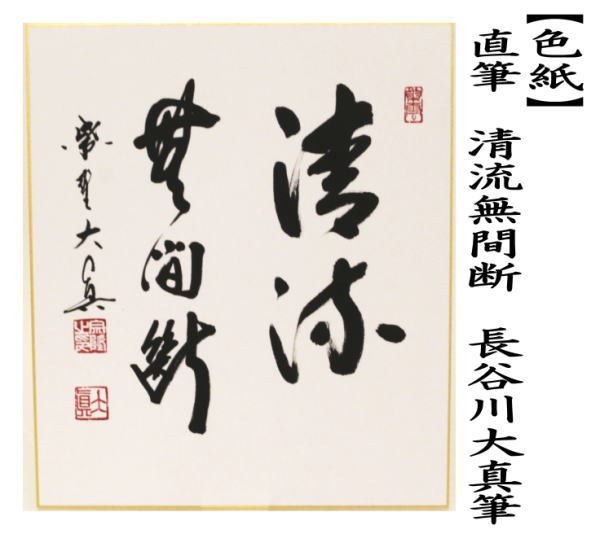 【色紙】
直筆 清流無間断 長谷川大真筆
清流
無間断
紫野大真
大真